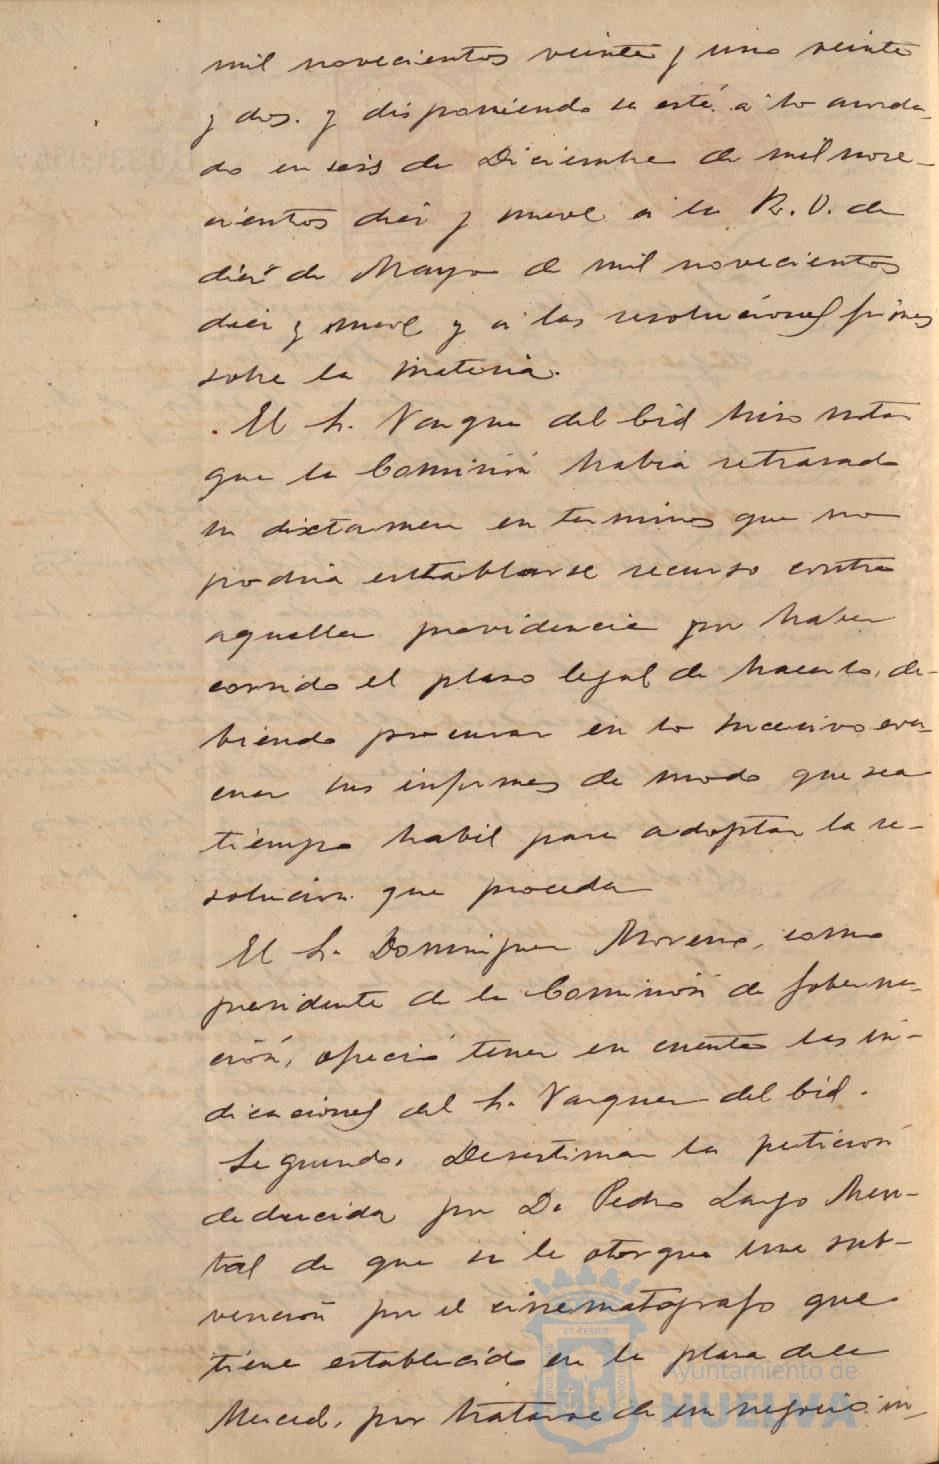 mil novecientos veinte y uno veinte
y dos. y disponiendo se esté a lo acorda-
do en seis de Diciembre de mil nove-
cientos diez y nueve a la R. O. de
diez de Mayo de mil novecientos
diez y nueve y a las resoluciones firmes
sobre la materia.
El Sr. Vazquez del Cid hizo notar
que la Comisión habia retrasado
su dictamen en terminos que no
podria entablarse recurso contra
aquella providencia por haber
corrido el plazo legal de hacerlo, de-
biendo procurar en lo sucesivo eva-
cuar sus informes de modo que sea
tiempo habil para adoptar la re-
solucion que proceda
El Sr. Dominguez Moreno, como
presidente de la Comisión de Goberna-
ción, ofreció tener en cuenta las in-
dicaciones del Sr. Vazquez del Cid.
Segundo. Desestimar la petición
deducida por Dn Pedro Largo
de que se le otorgue una sub-
vención por el cinematografo que
tiene establecido en la plaza de la
Merced, por tratarse de un negocio in-
Ayuntamiento de
HUELVA